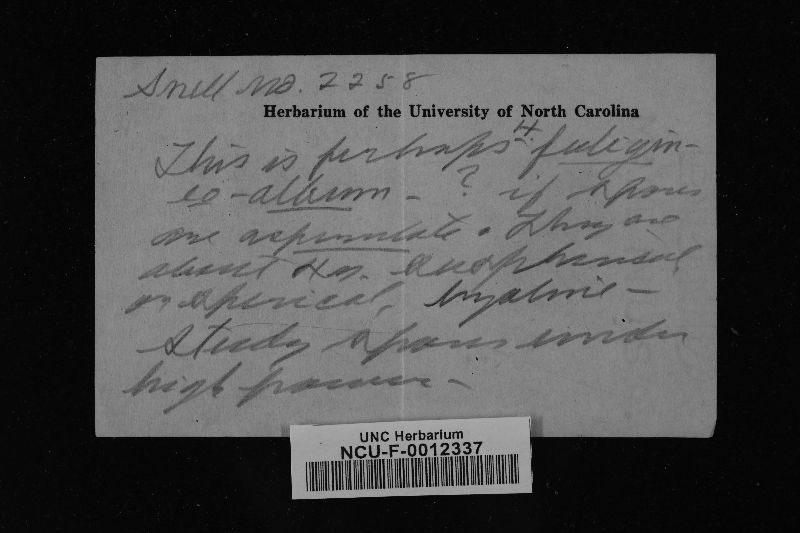 Snell No. 2258
Herbarium of the University of North Carolina
This is perhaps H. fuligin-
eo-album - ? if spores
are asperulate. They are
about 4µ. subspherical
or spherical, hyaline -
Study spores under
high power -
UNC Herbarium
NCU-F-0012337